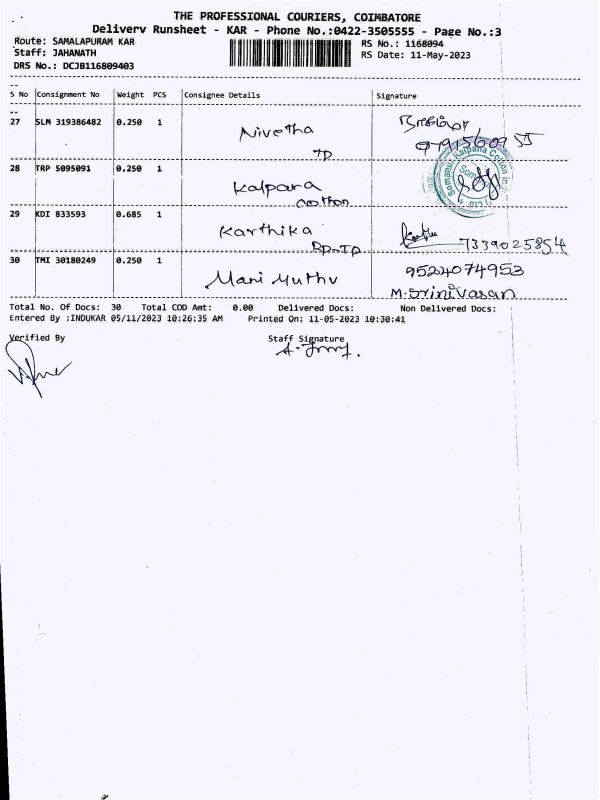 THE PROFESSIONAL COURIERS, COIMBATORE
Delivery Runsheet - KAR - Phone No.:0422-3505555 - Page No.:3
Route: SAMALAPURAM KAR RS No.: 1168094
Staff: JAHANATH RS Date: 11-May-2023
DRS No.: DCJB116809403
S No Consignment No Weight PCS Consignee Details Signature
27 SLM 319386482 0.250 1 Nivetha
TP
28 TRP 5095091 0.250 1 Kalpana
Cotton
29 KDI 833593 0.685 1 Karthika 7339025854
BP-TP
30 TMI 30180249 0.250 1 Mani Muthu 9524074953
M. Srinivasan
Total No. Of Docs: 30 Total COD Amt: 0.00 Delivered Docs: Non Delivered Docs:
Entered By :INDUKAR 05/11/2023 10:26:35 AM Printed On: 11-05-2023 10:30:41
Verified By Staff Signature